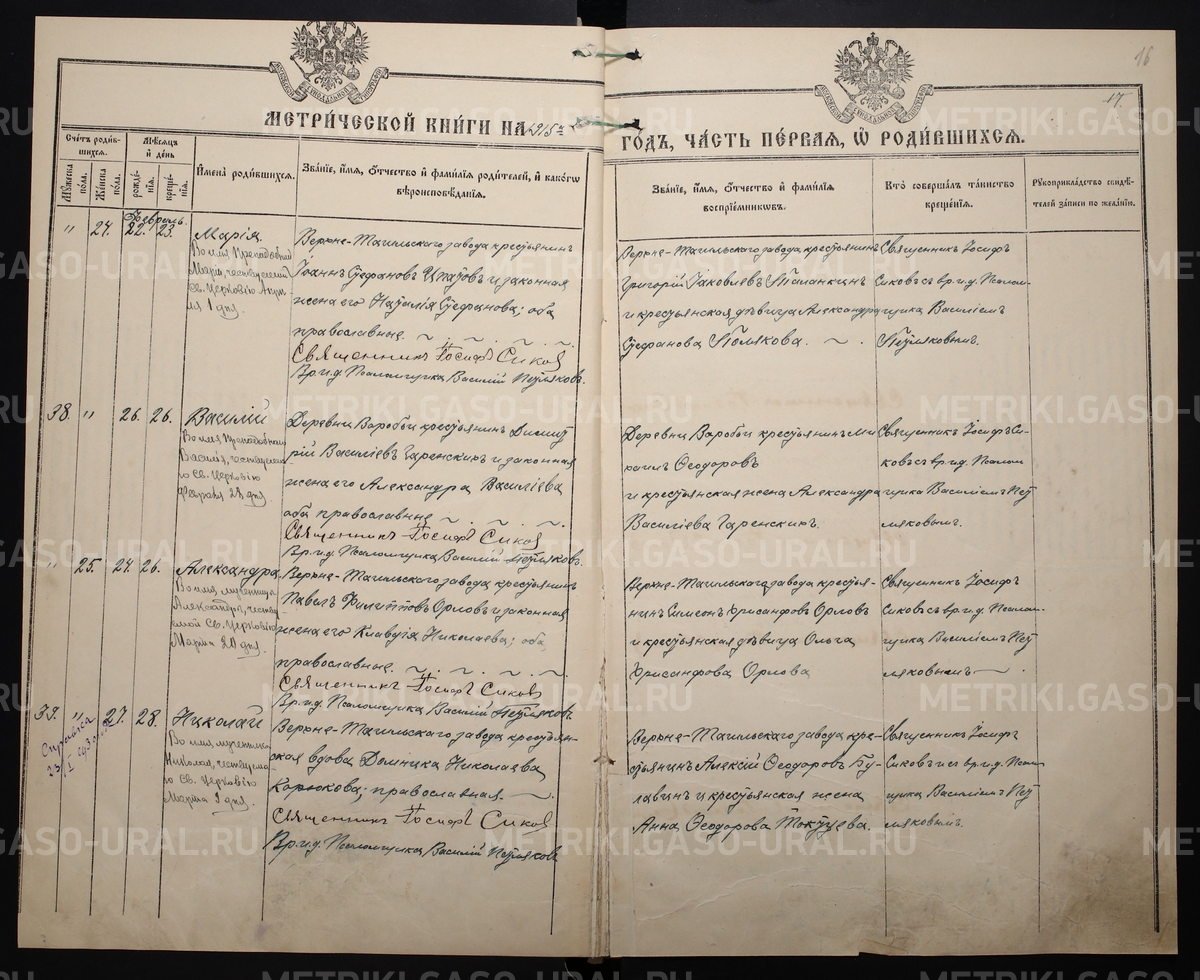 16
17.
МЕТРИ́ЧЕСКОЙ КНИ́ГИ НА 1915 й ГО́ДЪ, ЧА́СТЬ ПЕ́РВАЯ, Ѿ РОДИ́ВШИХСЯ.
Счетъ роди́вшихся.
Мꙋжеска по́ла.
Же́нска по́ла.
Мѣсяцъ и́ день
рожде́нїя.
креще́нїя.
И́мена роди́вшихся.
Зва́нїе, и́мя, о́тчество и́ фами́лїя роди́телей, и́ како́гѡ вѣроисповѣ́данїя.
Зва́нїе, и́мя, о́тчество и́ фами́лїя воспрїе́мникѡвъ.
Кто̀ соверша́лъ та́инство креще́нїя.
Рꙋкоприкла́дство свидѣ́телей за́писи по жела́нїю.
Февраль.
" 24. 22. 23.
Марія
Во имя Преподобной
Маріи, чествуемой
Св. Церковію Апрѣ-
ля 1 дня.
Верхне-Тагильскаго завода крестьянинъ
Іоаннъ Стефановъ и законная
жена его Наталія Стефанова; оба
православные.
Священникъ Іосифъ Сиковъ
Вр. и. д. Псаломщика Василій Петуляковъ.
Верхне-Тагильскаго завода крестьянинъ
Григорій Іаковлевъ
и крестьянская дѣвица Александра
Стефанова Полякова.
Священникъ Іосифъ
Сиковъ съ вр. и. д. Псалом-
щика Василіемъ
38. " 26. 26.
Василій
Во имя Преподобнаго
Василія, чествуема-
го Св. Церковію
Февраля 28 дня
Деревни Воробьи крестьянинъ Димит-
рій Василіевъ Гаренскихъ и законная
жена его Александра Василіева
оба православные
Священникъ Іосифъ Сиковъ
Вр. и. д. Псаломщика Василій
Деревни Воробьи крестьянинъ Ми-
хаилъ Ѳеодоровъ
и крестьянская жена Александра
Василіева Гаренскихъ.
Священникъ Іосифъ Си-
ковъ съ вр. и. д. Псалом-
щика Василіемъ
" 25. 24. 26.
Александра
Во имя мученицы
Александры, честву-
емой Св. Церковію
Марта 20 дня.
Верхне-Тагильскаго завода крестьянинъ
Павелъ Филипповъ Орловъ и законная
жена его Клавдія Николаева; оба
православные.
Священникъ Іосифъ Сиковъ
Вр. и. д. Псаломщика Василій
Верхне-Тагильскаго завода крестья-
нинъ Симеонъ Хрисанфовъ Орловъ
и крестьянская дѣвица Ольга
Хрисанфова Орлова
Священникъ Іосифъ
Сиковъ съ вр. и. д. Псалом-
щика Василіемъ
39. " 27. 28.
Справка
Николай
Во имя мученика
Николая, чествуема-
го Св. Церковію
Марта 9 дня.
Верхне-Тагильскаго завода крестьян-
ская вдова Домника Николаева
Карюкова; православная.
Священникъ Іосифъ Сиковъ
Вр. и. д. Псаломщика Василій
Верхне-Тагильскаго завода кре-
стьянинъ Алексій Ѳеодоровъ Бу-
лавинъ и крестьянская жена
Анна Ѳеодорова
Священникъ Іосифъ
Сиковъ съ вр. и. д. Псалом-
щика Василіемъ
METRIKI.GASO-URAL.RU